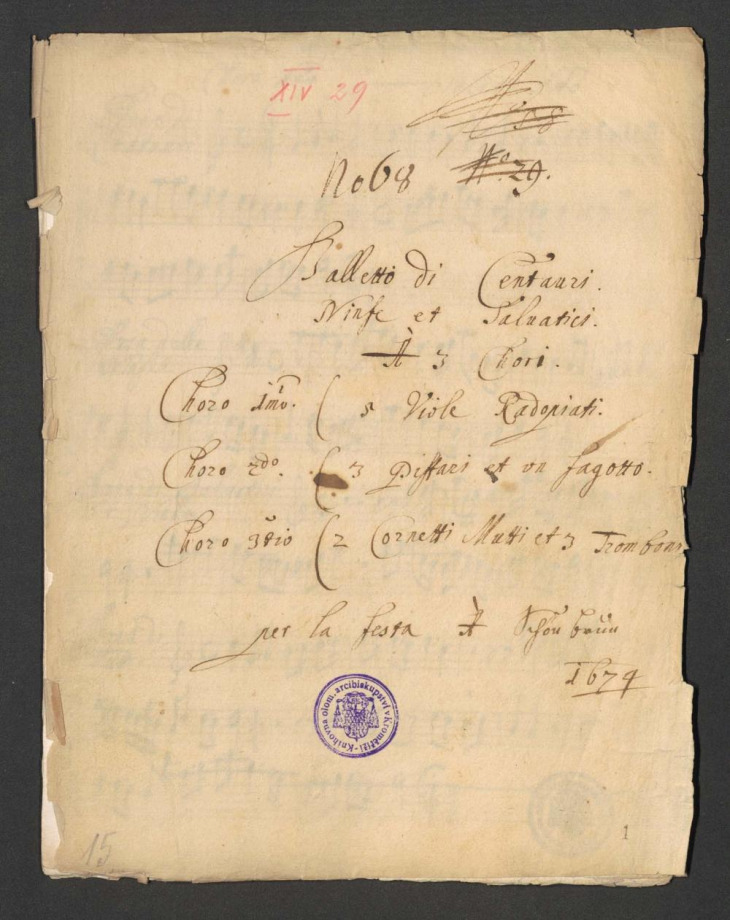 XIV 29
No 68 No. 29.
Balletto di Centauri.
Ninfe et Saluatici.
À 3 Chori.
Choro 1mo. ( 5 Viole Radopiati.
Choro 2do. ( 3 Piffari et un fagotto.
Choro 3tio ( 2 Cornetti Mutti et 3 Tromboni
per la festa À Schönbrün
1674
Knihovna olom. arcibiskupství v Kroměříži
1
15